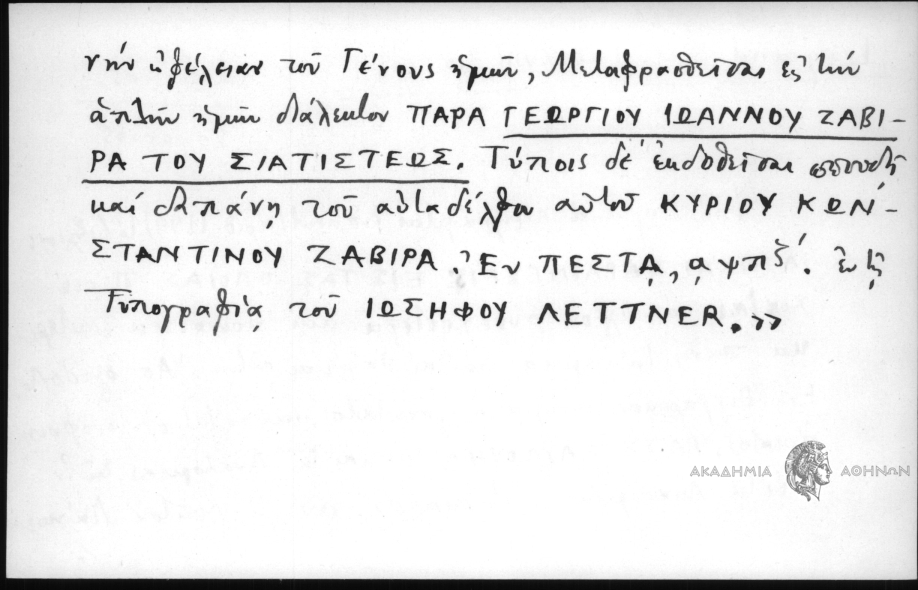 νὴν ὠφέλειαν τοῦ Γένους ἡμῶν, Μεταφρασθεῖσαι εἰς τὴν
ἁπλῆν ἡμῶν διάλεκτον ΠΑΡΑ ΓΕΩΡΓΙΟΥ ΙΩΑΝΝΟΥ ΖΑΒΙ-
ΡΑ ΤΟΥ ΣΙΑΤΙΣΤΕΩΣ. Τύποις δὲ ἐκδοθεῖσαι σπουδῇ
καὶ δαπάνῃ τοῦ αὐταδέλφου αὐτοῦ ΚΥΡΙΟΥ ΚΩΝ-
ΣΤΑΝΤΙΝΟΥ ΖΑΒΙΡΑ. Ἐν ΠΕΣΤᾼ, αψπζ΄. ἐν τῇ
Τυπογραφίᾳ τοῦ ΙΩΣΗΦΟΥ ΛΕΤΤΝΕR.»
ΑΚΑΔΗΜΙΑ ΑΘΗΝΩΝ